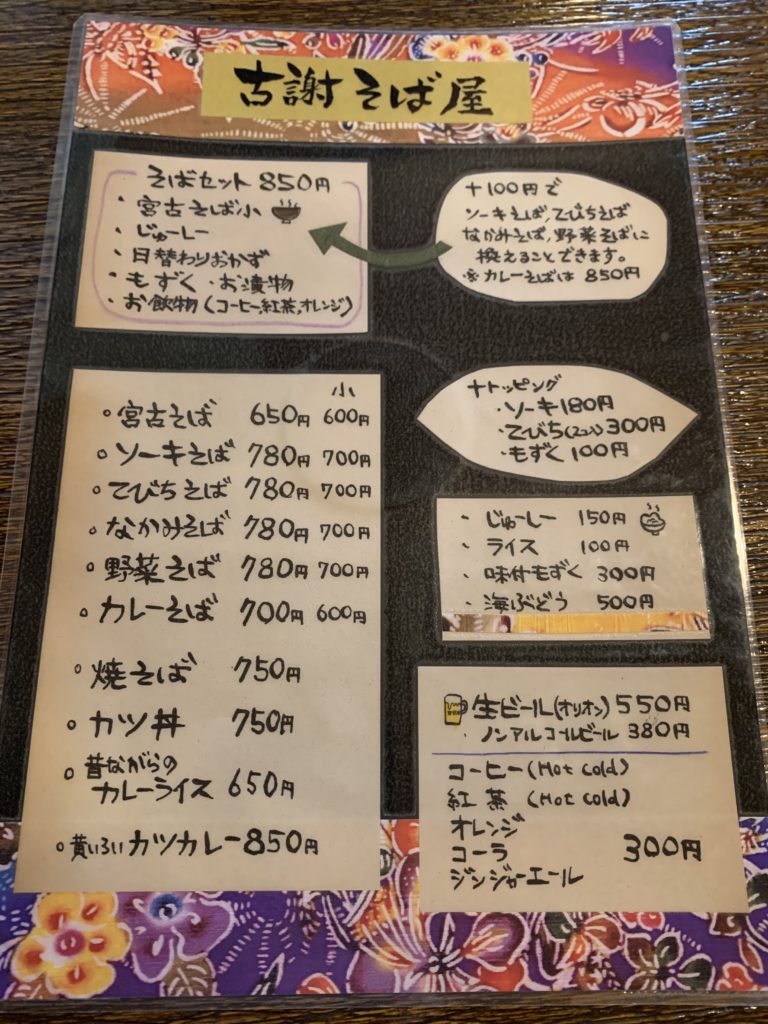 古謝そば屋
そばセット 850円
・宮古そば小
・じゅーしー
・日替わりおかず
・もずく ・お漬物
・お飲物(コーヒー,紅茶,オレンジ)
+100円で
ソーキそば,てびちそば
なかみそば,野菜そばに
換えることできます。
※カレーそばは 850円
小
○宮古そば 650円 600円
○ソーキそば 780円 700円
○てびちそば 780円 700円
○なかみそば 780円 700円
○野菜そば 780円 700円
○カレーそば 700円 600円
○焼そば 750円
○カツ丼 750円
○昔ながらの
カレーライス 650円
○黄いろいカツカレー 850円
+トッピング
・ソーキ180円
・てびち(2コ)300円
・もずく 100円
・じゅーしー 150円
・ライス 100円
・味付もずく 300円
・海ぶどう 500円
生ビール(オリオン) 550円
・ノンアルコールビール 380円
コーヒー(Hot Cold)
紅茶 (Hot Cold)
オレンジ
コーラ 300円
ジンジャーエール